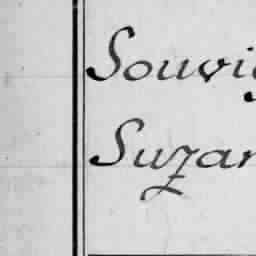 Souvig
Suzan